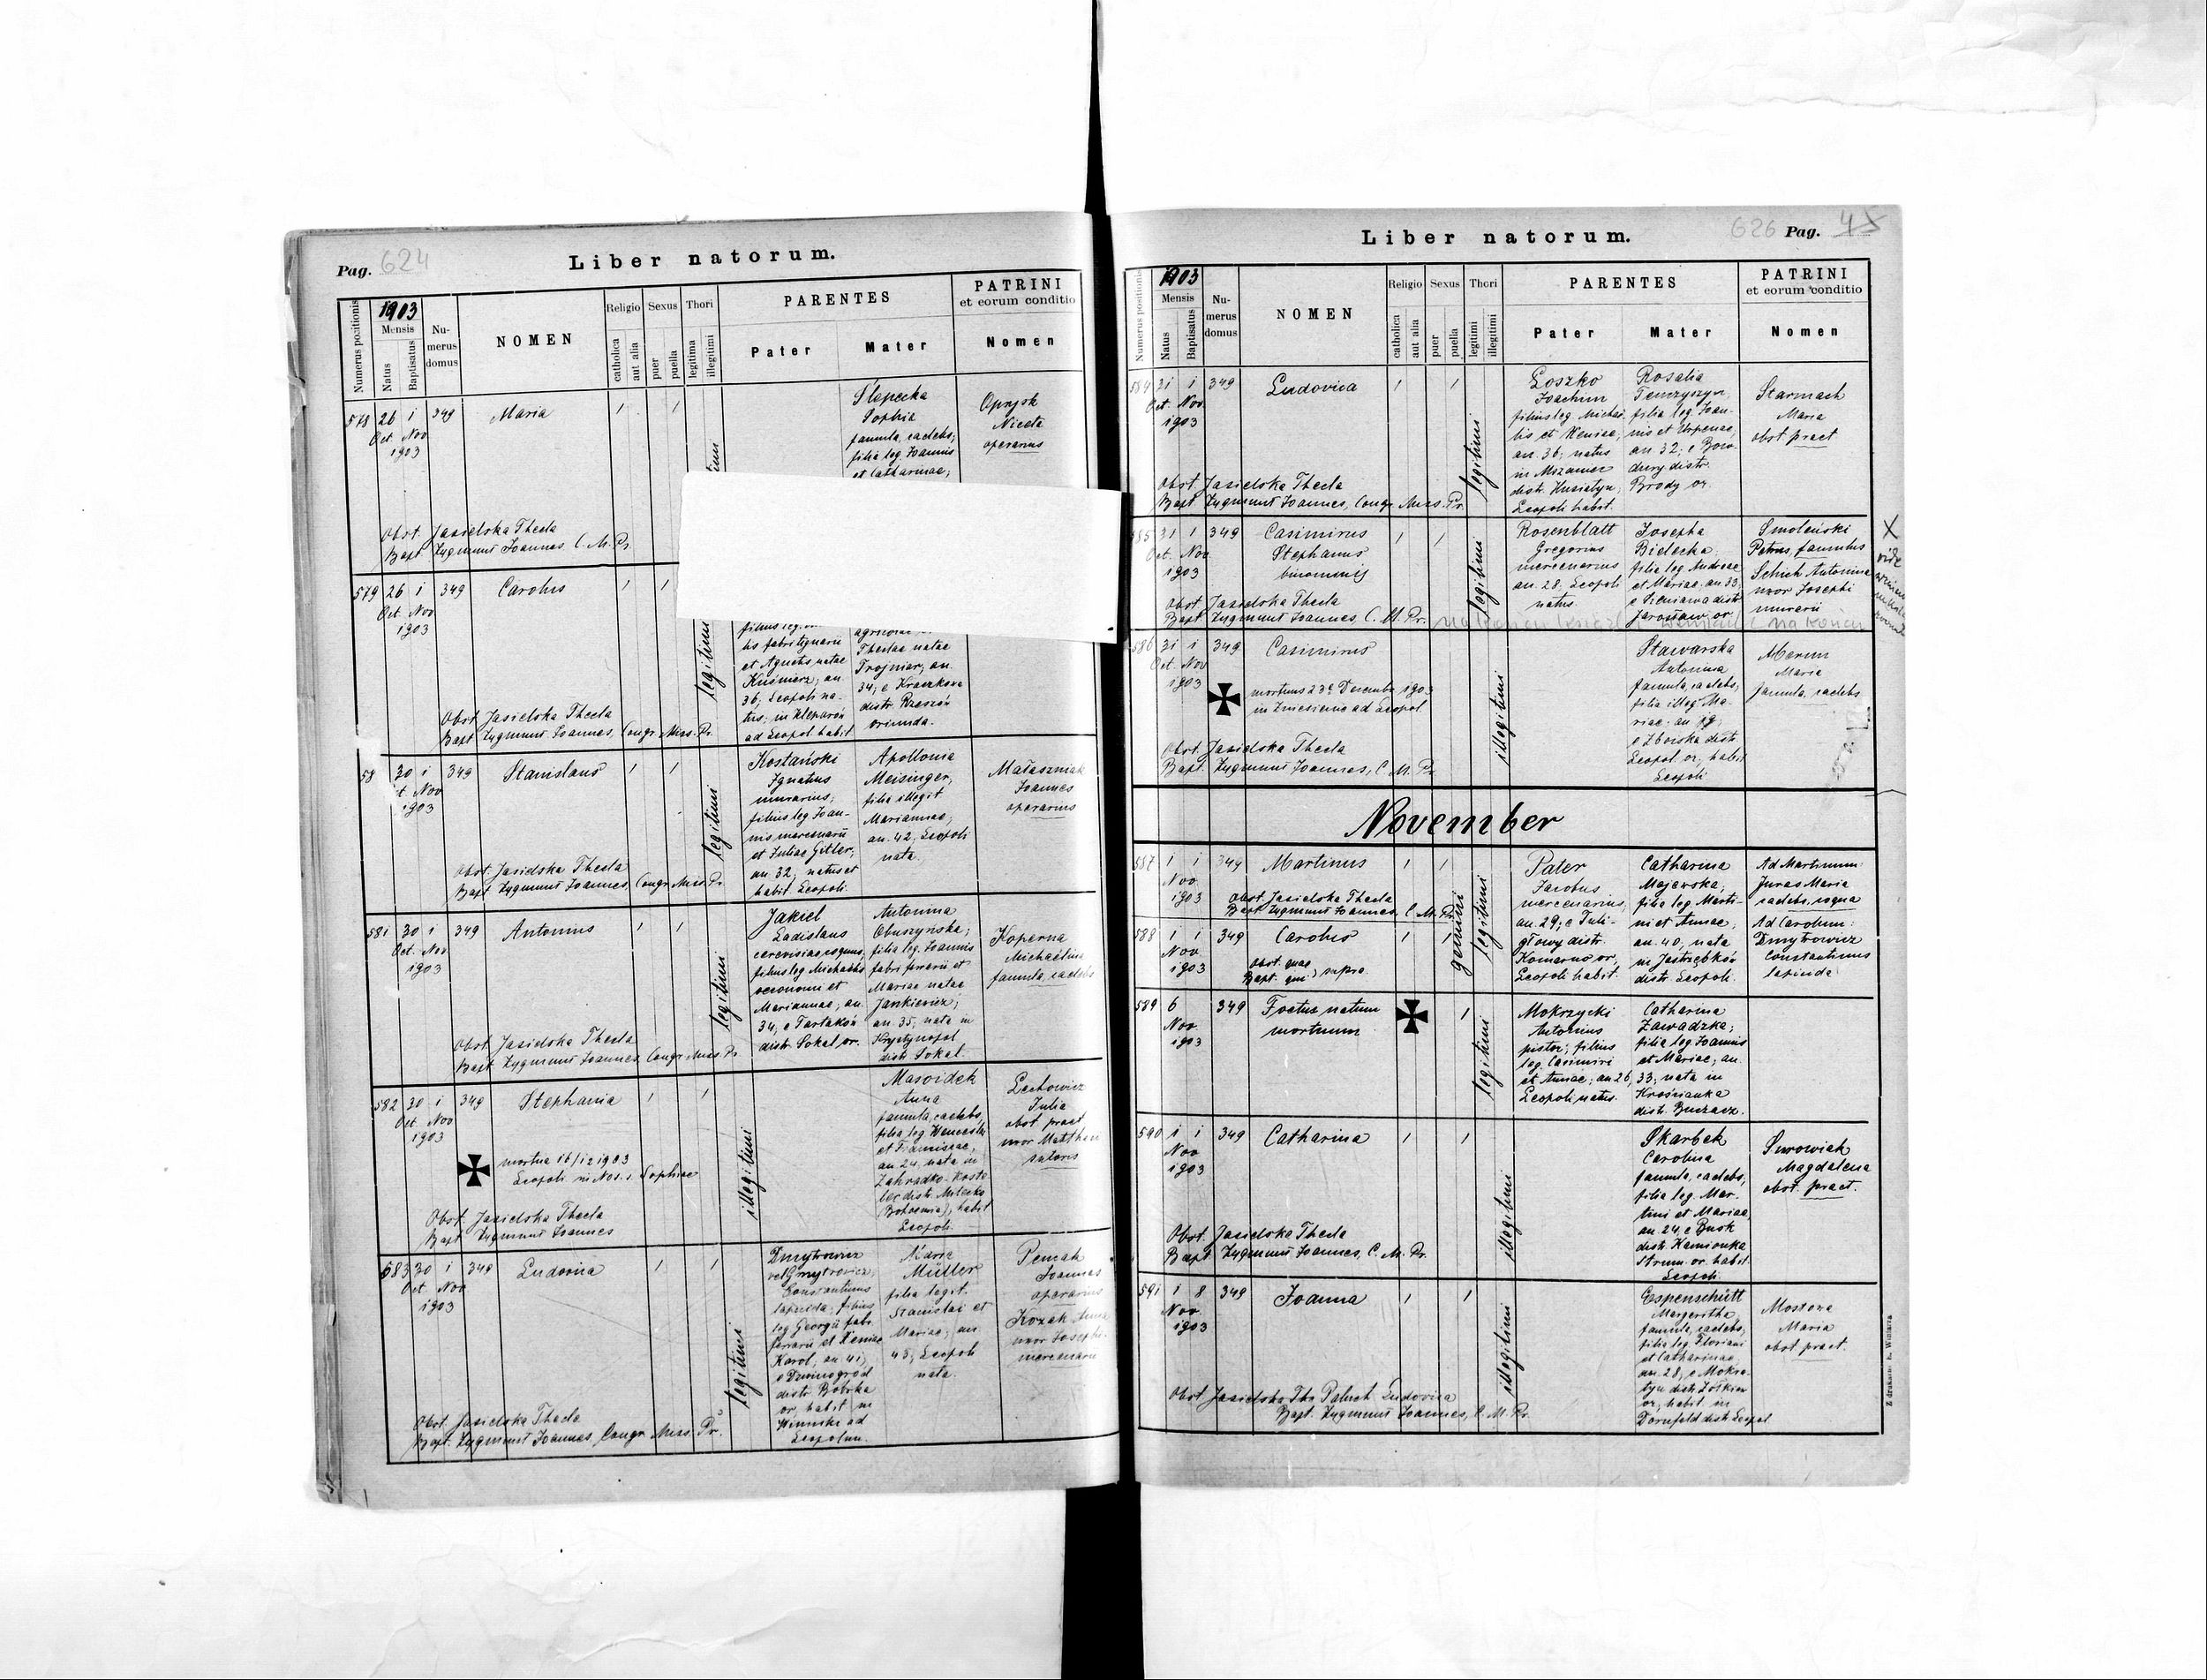 Pag. 624
Liber natorum.
Numerus positionis
1903
Mensis
Natus
Baptisatus
Nu-
merus
domus
NOMEN
Religio
catholica
aut alia
Sexus
puer
puella
Thori
legitima
illegitimi
PARENTES
Pater
Mater
PATRINI
et eorum conditio
Nomen
578 26 1 349 Maria
Oct. Nov
1903
Slepecka
Sophia
famula, caelebs,
filia leg. Joannis
et Catharinae,
Niceta
operarius
Obst. Jasielska Thecla
Bapt. Zygmunt Joannes C. M. Pr.
579 26 1 349 Carolus
Oct. Nov
1903
legitimi
filius leg.
lis fabri lignarii
et Agnetis natae
Kuśnierz, an.
36, Leopoli na-
tus, in Kleparów
ad Leopol habit.
Theclae natae
Trojniar, an.
34, e Kraczkowa
distr. Rzeszów
oriunda.
Obst. Jasielska Thecla
Bapt. Zygmunt Joannes, Congr. Miss. Pr.
58 30 1 349 Stanislaus
t. Nov
1903
legitimi
Kostański
Ignatius
murarius,
filius leg. Joan-
nis mercenarii
et Juliae Gitler,
an. 32, natus et
habit. Leopoli.
Apollonia
Meisinger,
filia illegit.
Mariannae,
an. 42, Leopoli
nata.
Małaszniak
Joannes
operarius
Obst. Jasielska Thecla
Bapt. Zygmunt Joannes, Congr. Miss. Pr.
581 30 1 349 Antonius
Oct. Nov
1903
legitimi
Jakiel
Ladislaus
filius leg. Michaelis
oeconomi et
Mariannae, an.
34, e Tartaków
distr. Sokal or.
Antonina
Obuszyńska,
filia leg. Joannis
fabri ferrarii et
Mariae natae
Jankiewicz,
an. 35, nata in
Krystynopol
distr. Sokal.
Koperna
Michaëlina
famula, caelebs
Obst. Jasielska Thecla
Bapt. Zygmunt Joannes, Congr. Miss. Pr.
582 30 1 349 Stephania
Oct. Nov
1903
mortua 16/12 1903
Leopoli in Nos. s. Sophiae
illegitimi
Masoidek
Anna
famula, caelebs,
filia leg. Wenceslai
et Franciscae,
an 24, nata in
Bohoemia), habit
Leopoli.
Lechowicz
Julia
obst. pract
uxor Matthaei
sutoris
Obst. Jasielska Thecla
Bapt. Zygmunt Joannes
583 30 1 349 Ludovica
Oct Nov
1903
legitimi
Dmytrowicz
vel Gmytrowicz,
Constantinus
lapicida, filius
leg Georgii fabri
ferrarii et Xeniae
Karol, an. 41,
distr Bobrka
or. habit in
Winniki ad
Leopolim.
Maria
Müller
filia legit.
Stanislai et
Mariae, an.
43, Leopoli
nata.
Joannes
operarius
Kozak Anna
uxor Josephi
mercenarii
Obst. Jasielska Thecla
Bapt. Zygmunt Joannes, Congr Miss. Pr.
Liber natorum.
626 Pag. 45
Numerus positionis
1903
Mensis
Natus
Baptisatus
Nu-
merus
domus
NOMEN
Religio
catholica
aut alia
Sexus
puer
puella
Thori
legitimi
illegitimi
PARENTES
Pater
Mater
PATRINI
et eorum conditio
Nomen
584 31 1 349 Ludovica
Oct. Nov
1903
legitimi
Łoszko
Joachim
filius leg. Michae-
lis et Xeniae,
an. 36, natus
in Mszaniec
distr. Husiatyn,
Leopoli habit.
Rosalia
filia leg. Joan-
nis et
an. 32, e
distr.
Brody or.
Starmach
Maria
obst. pract
Obst. Jasielska Thecla
Bapt. Zygmunt Joannes, Congr. Miss. Pr.
585 31 1 349 Casimirus
Oct. Nov Stephanus
1903 binominis
legitimi
Rosenblatt
Gregorius
mercenarius
an. 28, Leopoli
natus
Josepha
Bielecka,
filia leg. Andreae
et Mariae, an. 33,
e Sieniawa distr.
Jarosław or.
Smoleński
Petrus, famulus
Schich Antonina
uxor Josephi
murarii
X
vide
Obst. Jasielska Thecla
Bapt. Zygmunt Joannes, C. M. Pr.
586 31 1 349 Casimirus
Oct. Nov
1903
mortuus 23e Decembr 1903
in Zniesienie ad Leopol
illegitimi
Stawarska
Antonina
famula, caelebs,
filia illeg. Ma-
riae, an
e Zborska distr
Leopol or., habit
Leopoli
Maria
famula, caelebs
Obst. Jasielska Thecla
Bapt. Zygmunt Joannes, C. M. Pr.
November
587 1 1 349 Martinus
Nov
1903
Obst. Jasielska Thecla
Bapt. Zygmunt Joannes, C. M. Pr.
gemini
legitimi
Pater
Jacobus
mercenarius,
an. 29, e Tuli-
głowy distr.
Komarno or.,
Leopoli habit.
Catharina
Majewska,
filia leg. Marti-
ni et Annae,
an. 40, nata
in Jastrzębków
distr. Leopoli.
Ad Martinum:
Juras Maria
caelebs, coqua
588 1 1 349 Carolus
Nov
1903
obst. quae
Bapt. qui } supra
Ad Carolum:
Dmytrowicz
Constantinus
lapicida
589 6 349 Foetus natum
Nov mortuum
1903
legitimi
Mokrzycki
Antonius
pistor, filius
leg. Casimiri
et Annae, an 26,
Leopoli natus.
Catharina
Zawadzka,
filia leg. Joannis
et Mariae, an.
33, nata in
Krościanka
distr. Buczacz.
590 1 1 349 Catharina
Nov
1903
illegitimi
Skarbek
Carolina
famula, caelebs,
filia leg. Mar-
tini et Mariae,
an 24, e Busk
distr. Kamionka
Strum. or. habit.
Leopoli.
Surowiak
Magdalena
obst. pract.
Obst. Jasielska Thecla
Bapt. Zygmunt Joannes, C. M. Pr.
591 1 8 349 Joanna
Nov.
1903
illegitimi
Espenschütt
Margeritha
famula, caelebs,
filia leg. Floriani
et Catharinae,
an. 28, e Mokro-
tyn distr. Żółkiew
or., habit. in
Dornfeld distr. Leopol
Mostowa
Maria
obst pract.
Obst. Jasielska Thecla Paluch Ludovica
Bapt. Zygmunt Joannes, C. M. Pr.
Z drukarni E. Winiarza